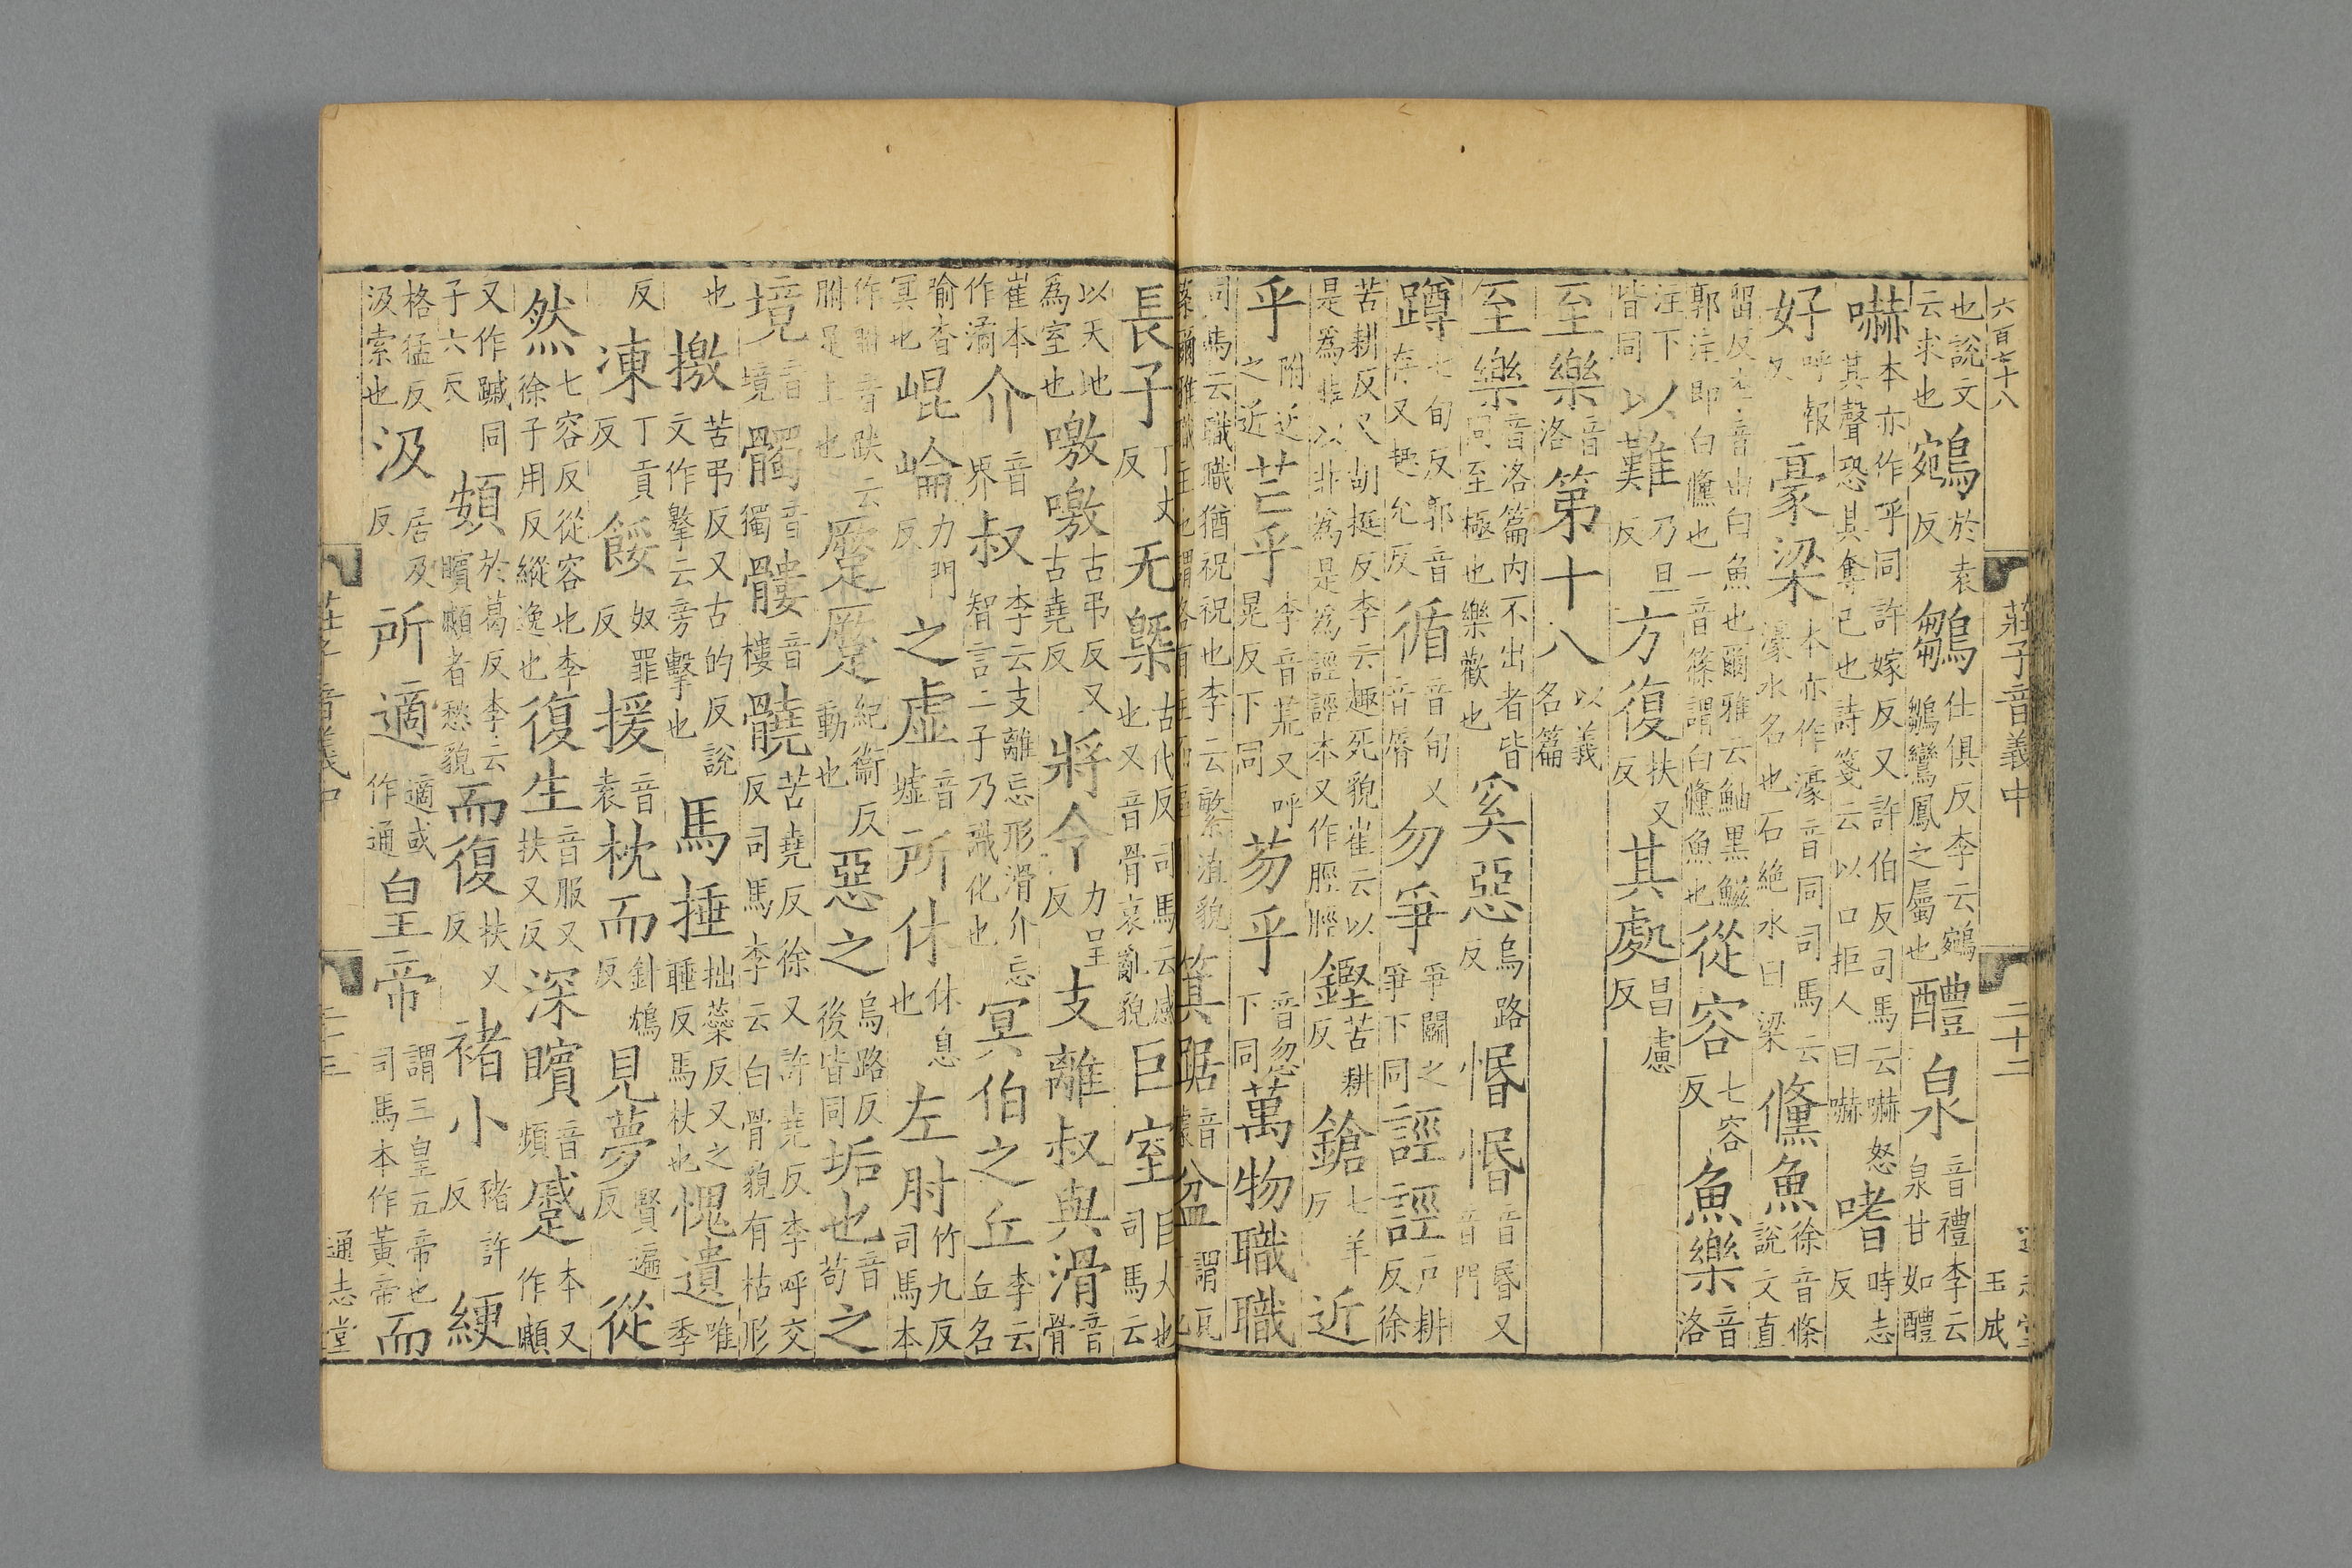 六百七十八 莊子音義中 二十二 通志堂 玉成
也說文云求也鵷於袁反鶵仕俱反李云鵷鶵鸞鳳之屬也醴泉音禮李云泉甘如醴
嚇本亦作乎同許嫁反又許伯反司馬云嚇怒其聲恐其奪己也詩箋云以口拒人曰嚇嗜時志反
好呼報反豪梁本亦作濠音同司馬云濠水名也石絶水曰梁儵魚徐音條說文直
留反李音由白魚也爾雅云鮋黑鰦郭注即白儵也一音篠謂白儵魚也從容七容反魚樂音洛
注下皆同以難乃旦反方復扶又反其處昌慮反
至樂音洛第十八以義名篇
至樂音洛篇內不出者皆同至極也樂歡也奚惡烏路反惛惛音昬又音門
蹲七旬反郭音存又趣允反循音旬又音脣勿爭爭鬭之爭下同誙誙戶耕反徐
苦耕反又胡挺反李云趣死貌崔云以是為非以非為是為誙誙本又作脛脛鏗苦耕反鎗七羊反近
乎附近之近芒乎李音荒又呼晃反下同芴乎音忽下同萬物職職
司馬云職職猶祝祝也李云繁殖貌案爾雅職主也謂各有主而區箕踞音據盆謂瓦也
長子丁丈反无槩古代反司馬云感也又音骨哀亂貌巨室巨大也司馬云
以天地為室也噭噭古弔反又古堯反將令力呈反支離叔與滑音骨
崔本作潏介音界叔李云支離忘形滑介忘智言二子乃識化也冥伯之丘李云丘名
喻杳冥也崐崘力門反之虛音墟所休休息也左肘竹九反司馬本
作胕音趺云胕足上也蹷蹷紀衞反動也惡之烏路反後皆同垢也音苟之
境音境髑音獨髏音樓髐苦堯反徐又許堯反李呼交反司馬李云白骨貌有枯形
也撽苦弔反又古的反說文作擊云旁擊也馬捶拙蘂反又之睡反馬杖也愧遺唯季
反凍丁貢反餒奴罪反援音袁枕而針鴆反見夢賢遍反從
然七容反從容也李徐子用反縱逸也復生音服又扶又反深矉音頻蹙本又作顣
又作蹴同子六反頞於葛反李云矉顣者愁貌而復扶又反褚小豬許反綆
格猛反汲索也汲居及反所適適或作通皇帝謂三皇五帝也司馬本作黃帝而
莊子音義中 二十三 通志堂